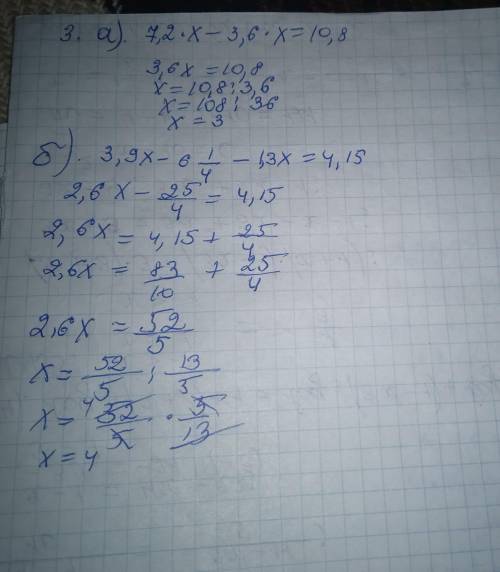 3. а). 7,2 · x − 3,6 · x = 10,8
3,6x = 10,8
x = 10,8 : 3,6
x = 108 : 36
x = 3
б). 3,9x − 6 1/4 − 1,3x = 4,15
2,6x − 25/4 = 4,15
2,6x = 4,15 + 25/4
2,6x = 83/10 + 25/4
2,6x = 52/5
x = 52/5 : 13/5
x = 4 52/5 · 5/13
x = 4